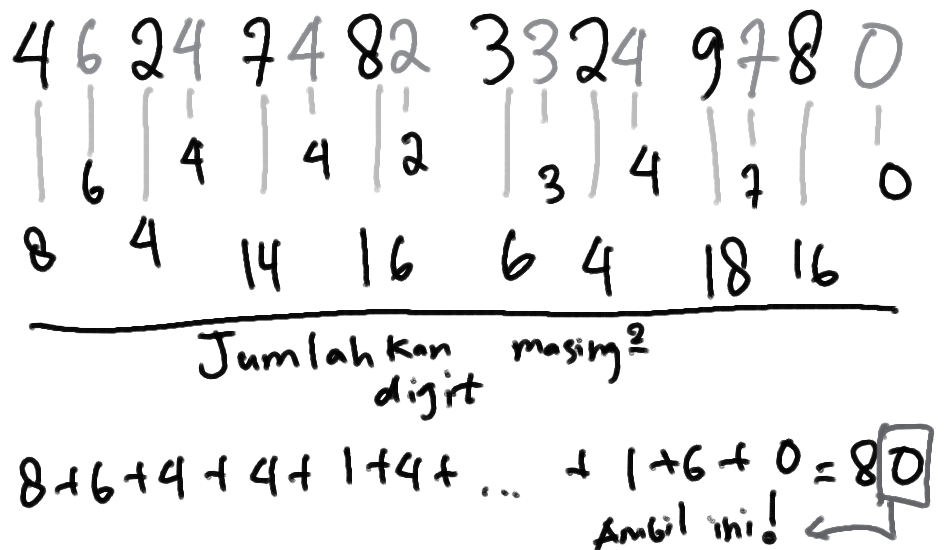 4 6 2 4 7 4 8 2 3 3 2 4 9 7 8 0
6 4 4 2 3 4 7 0
8 4 14 16 6 4 18 16
Jumlahkan masing²
digit
8+6+4+4+1+4+ ... + 1+6+0 = 80
Ambil ini!